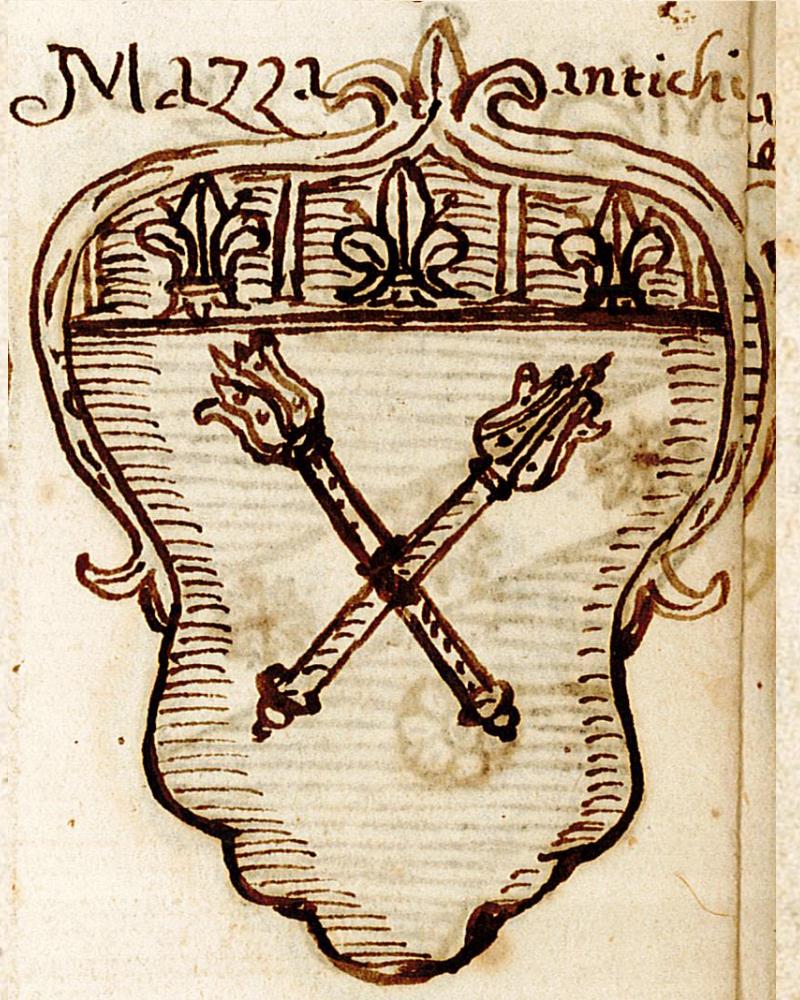 Mazza antichi